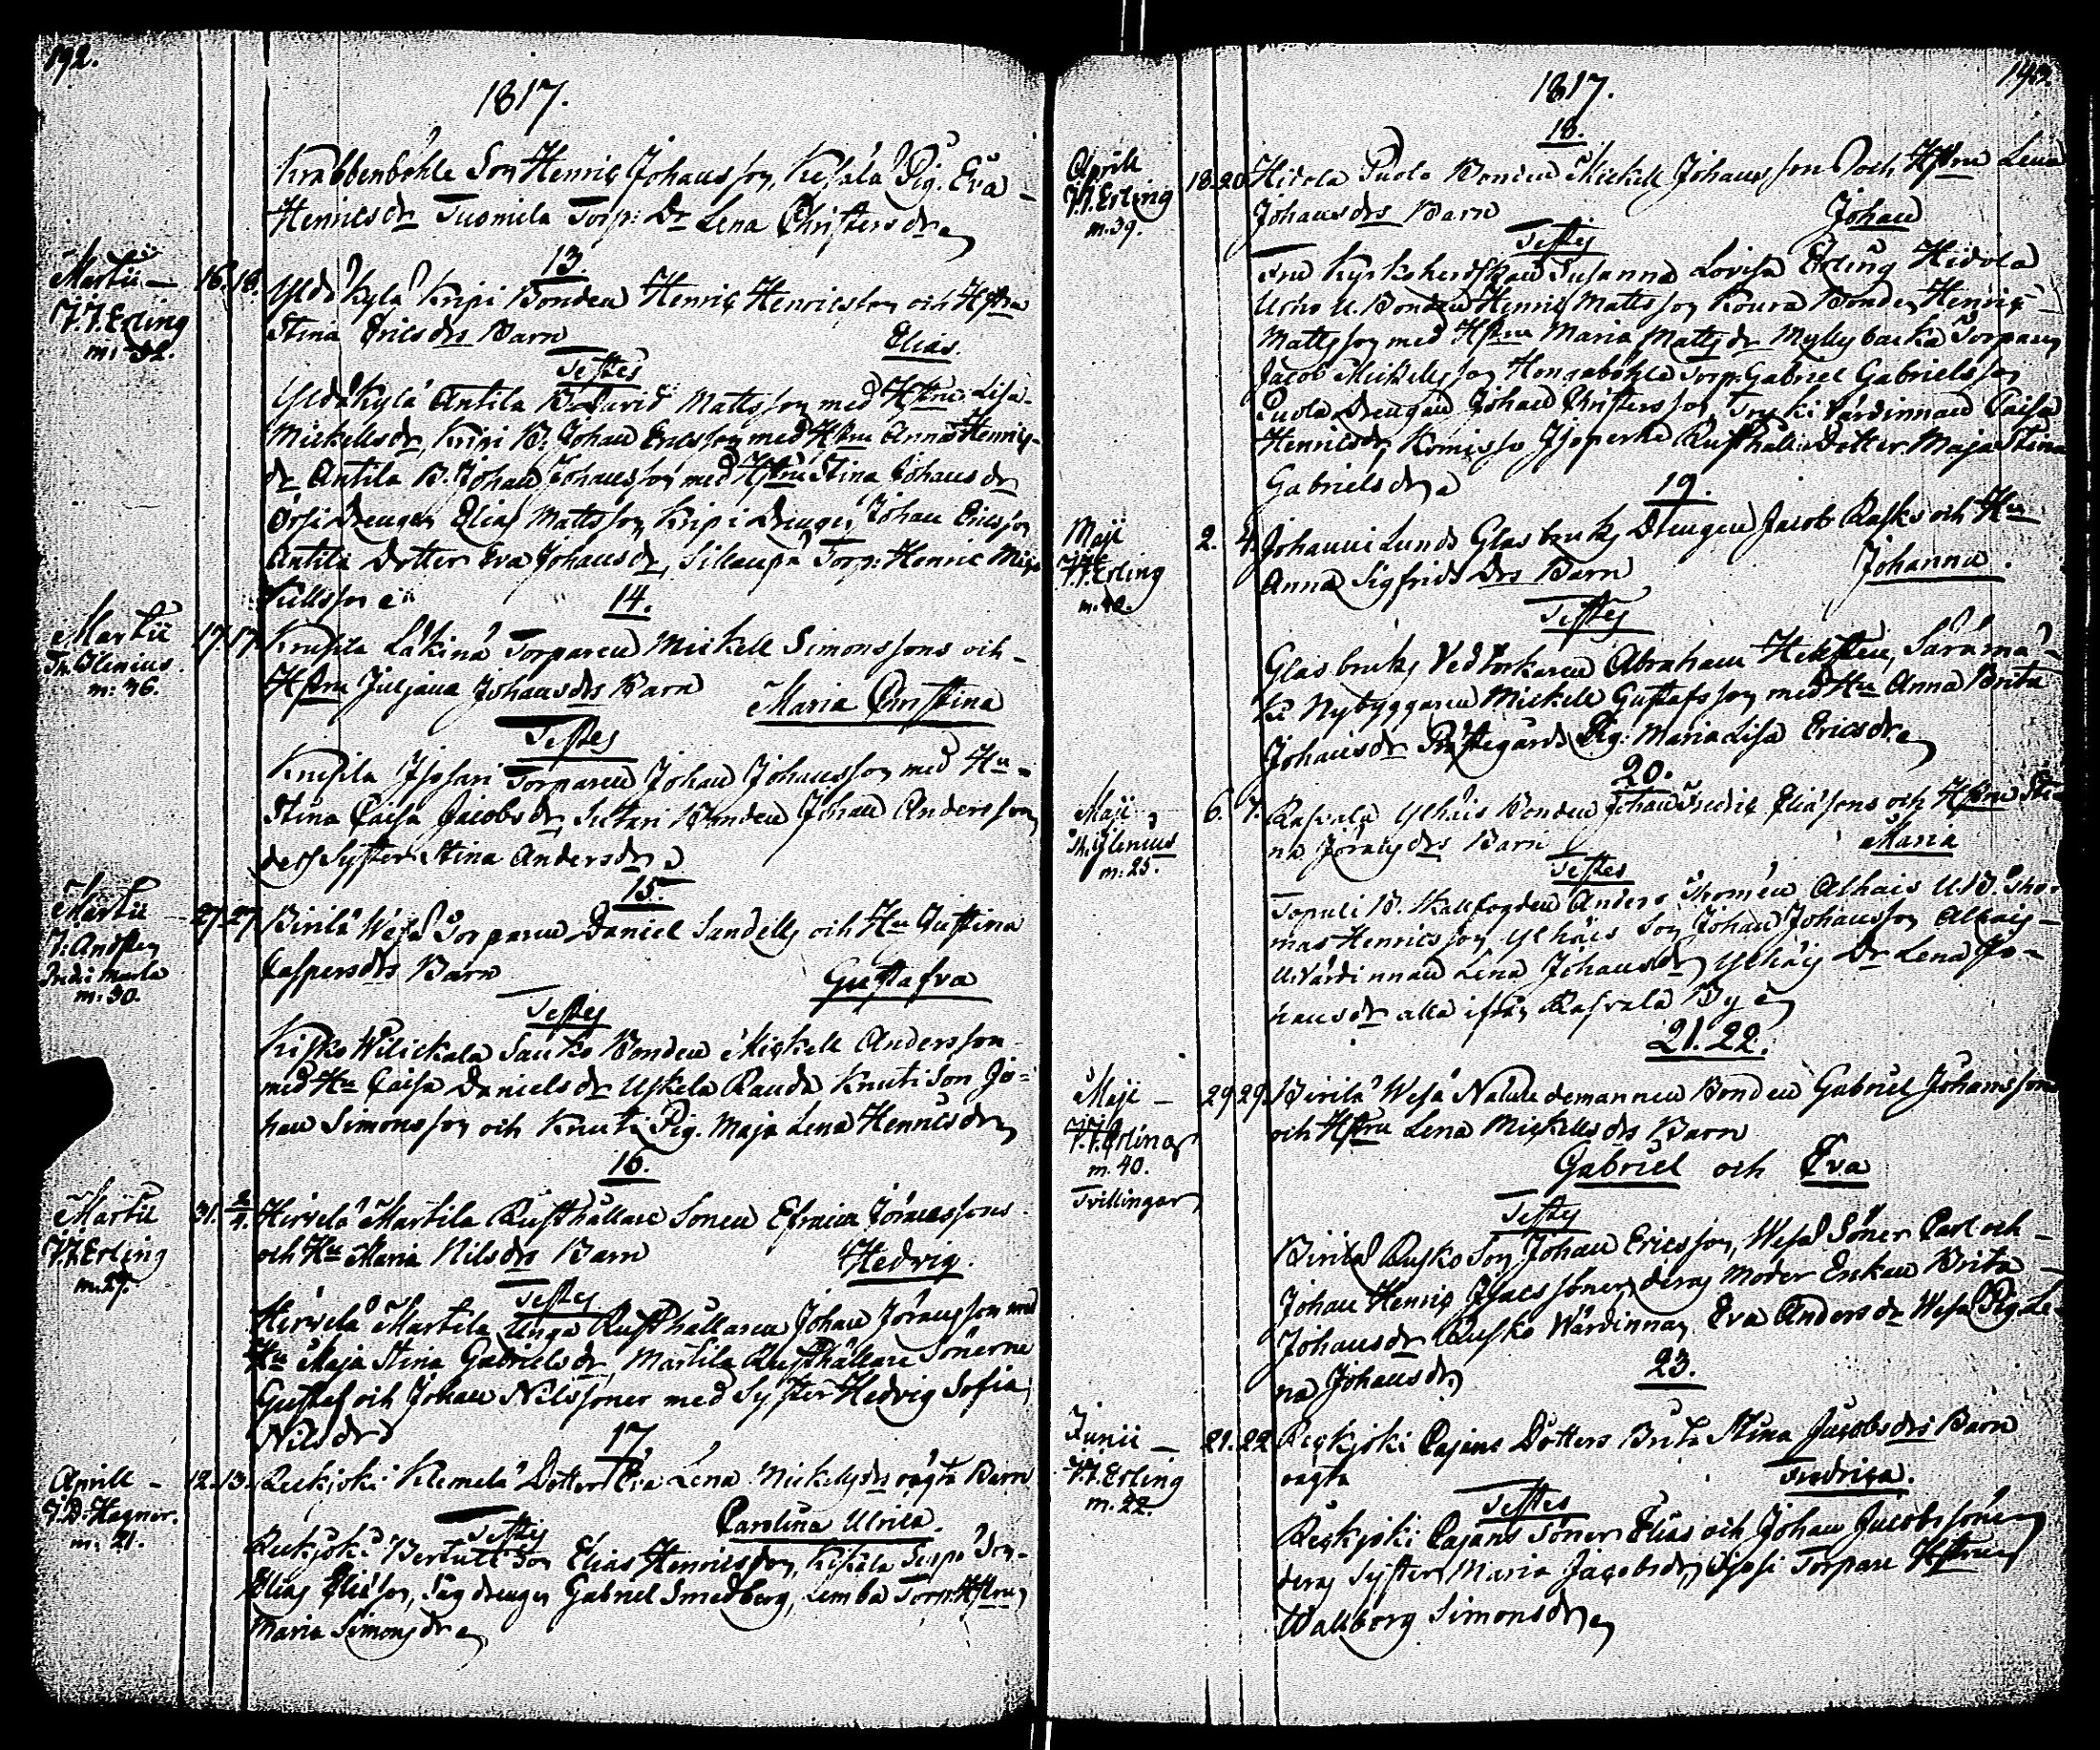 192.
1817.
Krabbenböhle Son Henric Johansson, Kesälä Pig. Eva
Henricsdr Tuomela Torp: Dr Lena Christersdr
13.
Martii — 16. 18. Yldäkylä Kripi Bonden Henric Henricsson och Hstru
J. J. Erling Stina Ericsdrs Barn Elias.
m: 32.
Testes
Yldäkylä Antila B. David Mattsson med Hstru Lisa
Mickellsdr, Kripi B. Johan Ericsson med Hstru Anna Henrics-
dr Antila B. Johan Johansson med Hstru Stina Johansdr
Orsi Drengen Elias Mattsson Kripi Drengen Johan Ericsson
Antila Dotter Eva Johansdr, Torp: Henric Mic-
kellsson
14.
Martii 17. 17. Knusila Läkinä Torparen Mickell Simonssons och
Th. Olenius. Hstru Juljana Johansdrs Barn Maria Christina
m: 36.
Testes
Knusila Torparen Johan Johansson med Hu
Stina Caisa Jacobsdr, Bonden Johan Andersson
dess Syster Stina Andersdr
15.
Martii 27. 27. Pirilä Wesa Torparen Daniel Sandells och Hu Justina
Caspersdrs Barn Gustafva
m: 30.
Testes
Kisko Wilickala Sauko Bonden Mickell Andersson
med Hu Caisa Danielsdr Uskela Rauda Knuti Son Jo-
han Simonsson och Knuti Pig. Maja Lena Henricsdr
16.
Martii 31. 2/4. Hirvelä Martila Rusthållare Sonen Efraim Göranssons
J. J. Erling och Hu Maria Nilsdrs Barn Hedvig.
m. 27.
Testes
Hirvelä Martila Unga Rusthållaren Johan Göransson med
Hu Maja Stina Gabrielsdr, Martila Rusthållare Sönerne
Gustaf och Johan Nilssöner med Syster Hedvig Sofia
Nilsdr
17.
Aprill — 12. 13. Reckjoki Klemelä Dotter Eva Lena Mickelsdrs oägta Barn
J. D. Hagner. Carolina Ulrica.
m. 21.
Testes
Reckjoki Bertula Son Elias Henricsson, Kisälä Seppä Son
Elias Eliasson, Såg drengen Gabriel Smedberg, Lemba Torp. Hstrun
Maria Simonsdr
1817.
18.
Aprill 18. 20. Hidola Puolo Bonden Mickell Johansson och Hstru Lena
J. J. Erling Johansdrs Barn Johan
m. 39.
Testes
Fru Kyrkoherdskan Susanna Lovisa Erling Hidola
Bonden Henric Mattsson Koura Bonden Henric
Mattsson med Hstru Maria Mattsdr Myllybacka Torparen
Jacob Mickellsson Hongaböhle Torp: Gabriel Gabrielsson
Puola Drengen Johan Christersson, Tryki Värdinnan Caisa
Henricsdr, Komisso Isoperhe Rusthållar Dotter Maja Stina
Gabrielsdr
19.
Maji 2. 4. Johanni Lunds Glasbruks Drengen Jacob Rasks och Hu
J. J. Erling Anna Sigfrids Drs Barn Johanna.
m. 40.
Testes
Glasbruks Vedhorkaren Abraham Hellsten, Särämä-
ki Nybyggaren Mickell Gustafsson med Hu Anna Brita
Johansdr Prästegårds Pig. Maria Lisa Ericsdr
20.
Maji 6. 7. Rasvala Ylhäis Bonden Johan Fredric Eliassons och Hstru Sti-
Th. Olenius na Göransdrs Barn Maria
m: 25.
Testes
Topuli B. Skallfogden Anders Thomén Alhais U.B. Tho-
mas Henricsson, Ylhäis Son Johan Johansson Alhais
U. Värdinnan Lena Johansdr, Ylhäis Dr Lena Jo-
hansdr alla ifrån Rasvala By
21. 22.
Maji — 29. 29. Pirilä Wesa Nämndemannen Bonden Gabriel Johansson
J. J. Erling och Hstru Lena Mickellsdrs Barn
m. 40.
Tvillingar Gabriel och Eva
Testes
Pirilä Rusko Son Johan Ericsson, Wesa Söner Carl och
Johan Henric Isacssöner, deras Moder Enkan Brita
Johansdr Rusko Wärdinnan Eva Andersdr Wesa Pig. Le-
na Johansdr
23.
Junii — 21. 22. Reckjoki Cajans Dotters Brita Stina Jacobsdrs Barn
J. J. Erling oägta Fredrica.
m. 22.
Testes
Reckjoki Cajans Söner Elias och Johan Jacobssöner
deras Syster Maria Jacobsdr, Torpare Hstrun
Wallborg Simonsdr